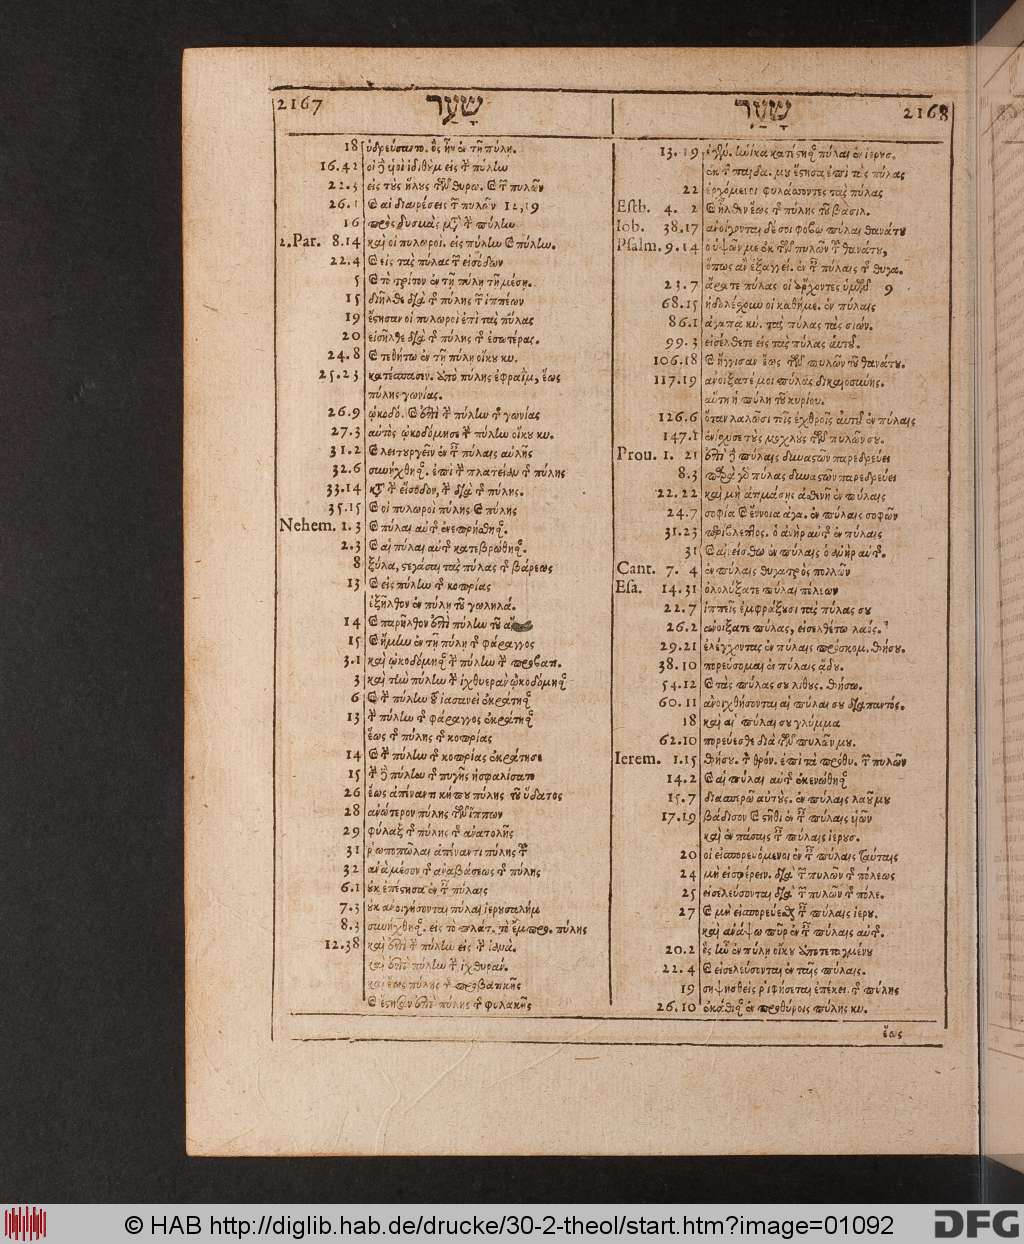 2167 שָׁעַר
18 ὑδρεύσαντο. ὃς ἦν ἐν τῇ πύλῃ.
16. 42 οἱ εἰς πύλην
22. 3 εἰς τοὺς ἥλους τῶν θυρω. καὶ τῶν πυλῶν
26. 1 καὶ αἱ διαιρέσεις τῶν πυλῶν 12, 19
16 πρὸς δυσμὰς μετὰ τὴν πύλην
2. Par. 8. 14 καὶ οἱ πυλωροὶ. εἰς πύλην καὶ πύλην.
22. 4 καὶ εἰς τὰς πύλας τῶν εἰσόδων
5 καὶ τὸ τρίτον ἐν τῇ πύλῃ τῇ μέσῃ.
15 διῆλθε διὰ τῆς πύλης τῶν ἱππέων
19 ἔστησαν οἱ πυλωροὶ ἐπὶ τὰς πύλας
20 εἰσῆλθε διὰ τῆς πύλης τῆς ἐσωτέρας.
24. 8 καὶ τεθήτω ἐν τῇ πύλῃ οἴκου κυ.
25. 23 κατέσπασεν. ἀπὸ πύλης ἐφραΐμ, ἕως
πύλης γωνίας.
26. 9 ᾠκοδό. καὶ ἐπὶ τὴν πύλην τῆς γωνίας
27. 3 αὐτὸς ᾠκοδόμησε τὴν πύλην οἴκου κυ.
31. 2 καὶ λειτουργεῖν ἐν ταῖς πύλαις αὐλῆς
32. 6 συνήχθησαν. ἐπὶ τὴν πλατεῖαν τῆς πύλης
33. 14 κατὰ τὴν εἴσοδον, τὴν διὰ τῆς πύλης.
35. 15 καὶ οἱ πυλωροὶ πύλης καὶ πύλης
Nehem. 1. 3 καὶ πύλαι αὐτῆς ἐνεπρήσθησαν.
2. 3 καὶ αἱ πύλαι αὐτῆς κατεβρώθησαν.
8 ξύλα, στεγάσαι τὰς πύλας τῆς βάρεως
13 καὶ εἰς πύλην τῆς κοπρίας
ἐξῆλθον ἐν πύλῃ τοῦ γωληλά.
14 καὶ παρῆλθον ἐπὶ πύλην τοῦ
15 καὶ ἤμην ἐν τῇ πύλῃ τῆς φάραγγος
3. 1 καὶ ᾠκοδόμησαν τὴν πύλην τὴν προβατ.
3 καὶ τὴν πύλην τὴν ἰχθυηρὰν ᾠκοδόμησαν
6 καὶ τὴν πύλην τοῦ ἰασανεὶ ἐκράτησαν
13 τὴν πύλην τῆς φάραγγος ἐκράτησαν
ἕως τῆς πύλης τῆς κοπρίας
14 καὶ τὴν πύλην τῆς κοπρίας ἐκράτησε
15 τὴν δὲ πύλην τῆς πηγῆς ἠσφαλίσατο
26 ἕως ἀπέναντι κήπου πύλης τοῦ ὕδατος
28 ἀνώτερον πύλης τῶν ἵππων
29 φύλαξ τῆς πύλης τῆς ἀνατολῆς
31 ῥωποπῶλαι ἀπέναντι πύλης τοῦ
32 ἀνὰ μέσον τῆς ἀναβάσεως τῆς πύλης
6. 1 οὐκ ἐπέστησα ἐν ταῖς πύλαις
7. 3 οὐκ ἀνοιγήσονται πύλαι ἱερουσαλὴμ
8. 3 συνήχθησαν. εἰς τὸ πλάτ. τὸ ἔμπρο. πύλης
12. 38 καὶ ἐπὶ τὴν πύλην εἰς τὴν
καὶ ἐπὶ πύλην τὴν ἰχθυράν.
καὶ ἕως πύλης τῆς προβατικῆς
καὶ ἔστησαν ἐπὶ πύλης τῆς φυλακῆς
שַׁעַר 2168
13. 19 ἐγένε. ἡνίκα κατέστησαν πύλαι ἐν ἱερουσ.
ἐκ τῶν παιδα. μου ἔστησα ἐπὶ τὰς πύλας
22 ἐρχόμενοι φυλάσσοντες τὰς πύλας
Esth. 4. 2 καὶ ἦλθεν ἕως τῆς πύλης τοῦ βασιλ.
Iob. 38. 17 ἀνοίγονται δέ σοι φόβῳ πύλαι θανάτου
Psalm. 9. 14 ὁ ὑψῶν με ἐκ τῶν πυλῶν τοῦ θανάτου,
ὅπως ἂν ἐξαγγεί. ἐν ταῖς πύλαις τῆς θυγα.
23. 7 ἄρατε πύλας οἱ ἄρχοντες ὑμῶν 9
68. 15 ἠδολέσχουν οἱ καθήμε. ἐν πύλαις
86. 1 ἀγαπᾷ κυ. τὰς πύλας τὰς σιών.
99. 3 εἰσέλθετε εἰς τὰς πύλας αὐτοῦ.
106. 18 καὶ ἤγγισαν ἕως τῶν πυλῶν τοῦ θανάτου.
117. 19 ἀνοίξατέ μοι πύλας δικαιοσύνης.
αὕτη ἡ πύλη τοῦ κυρίου.
126. 6 ὅταν λαλῶσι τοῖς ἐχθροῖς αὐτῶν ἐν πύλαις
147. 1 ἐνίσχυσε τοὺς μοχλοὺς τῶν πυλῶν σου.
Prou. 1. 21 ἐπὶ δὲ πύλαις δυναστῶν παρεδρεύει
8. 3 παρὰ γὰρ πύλας δυναστῶν παρεδρεύει
22. 22 καὶ μὴ ἀτιμάσῃς ἀσθενῆ ἐν πύλαις
24. 7 σοφία καὶ ἔννοια ἀγα. ἐν πύλαις σοφῶν
31. 23 περίβλεπτος. ὁ ἀνὴρ αὐτῆς ἐν πύλαις
31 καὶ αἰνείσθω ἐν πύλαις ὁ ἀνὴρ αὐτῆς.
Cant. 7. 4 ἐν πύλαις θυγατρὸς πολλῶν
Esa. 14. 31 ὀλολύξατε πύλαι πόλεων
22. 7 ἱππεῖς ἐμφράξουσι τὰς πύλας σου
26. 2 ἀνοίξατε πύλας, εἰσελθέτω λαός.
29. 21 ἐλέγχοντας ἐν πύλαις πρόσκομ. θήσου.
38. 10 πορεύσομαι ἐν πύλαις ᾅδου.
54. 12 καὶ τὰς πύλας σου λίθους. θήσω.
60. 11 ἀνοιχθήσονται αἱ πύλαι σου διαπαντός.
18 καὶ αἱ πύλαι σου γλύμμα
62. 10 πορεύεσθε διὰ τῶν πυλῶν μου.
Ierem. 1. 15 θήσου. τὸν θρόν. ἐπὶ τὰ πρόθυ. τῶν πυλῶν
14. 2 καὶ αἱ πύλαι αὐτῆς ἐκενώθησαν
15. 7 διασπερῶ αὐτούς. ἐν πύλαις λαοῦ μου
17. 19 βάδισον καὶ στῆθι ἐν ταῖς πύλαις υἱῶν
καὶ ἐν πάσαις ταῖς πύλαις ἱερουσ.
20 οἱ εἰσπορευόμενοι ἐν ταῖς πύλαις ταύταις
24 μὴ εἰσφέρειν. διὰ τῶν πυλῶν τῆς πόλεως
25 εἰσελεύσονται διὰ τῶν πυλῶν τῆς πόλε.
27 καὶ μὴ εἰσπορεύεσθαι ταῖς πύλαις ἱερου.
καὶ ἀνάψω πῦρ ἐν ταῖς πύλαις αὐτῆς.
20. 2 ὃς ἦν ἐν πύλῃ οἴκου ἀποτεταγμένου
22. 4 καὶ εἰσελεύσονται ἐν ταῖς πύλαις.
19 συμψησθεὶς ῥιφήσεται ἐπέκει. τῆς πύλης
26. 10 ἐκάθισαν ἐν προθύροις πύλης κυ.
ἕως
© HAB http://diglib.hab.de/drucke/30-2-theol/start.htm?image=01092 DFG